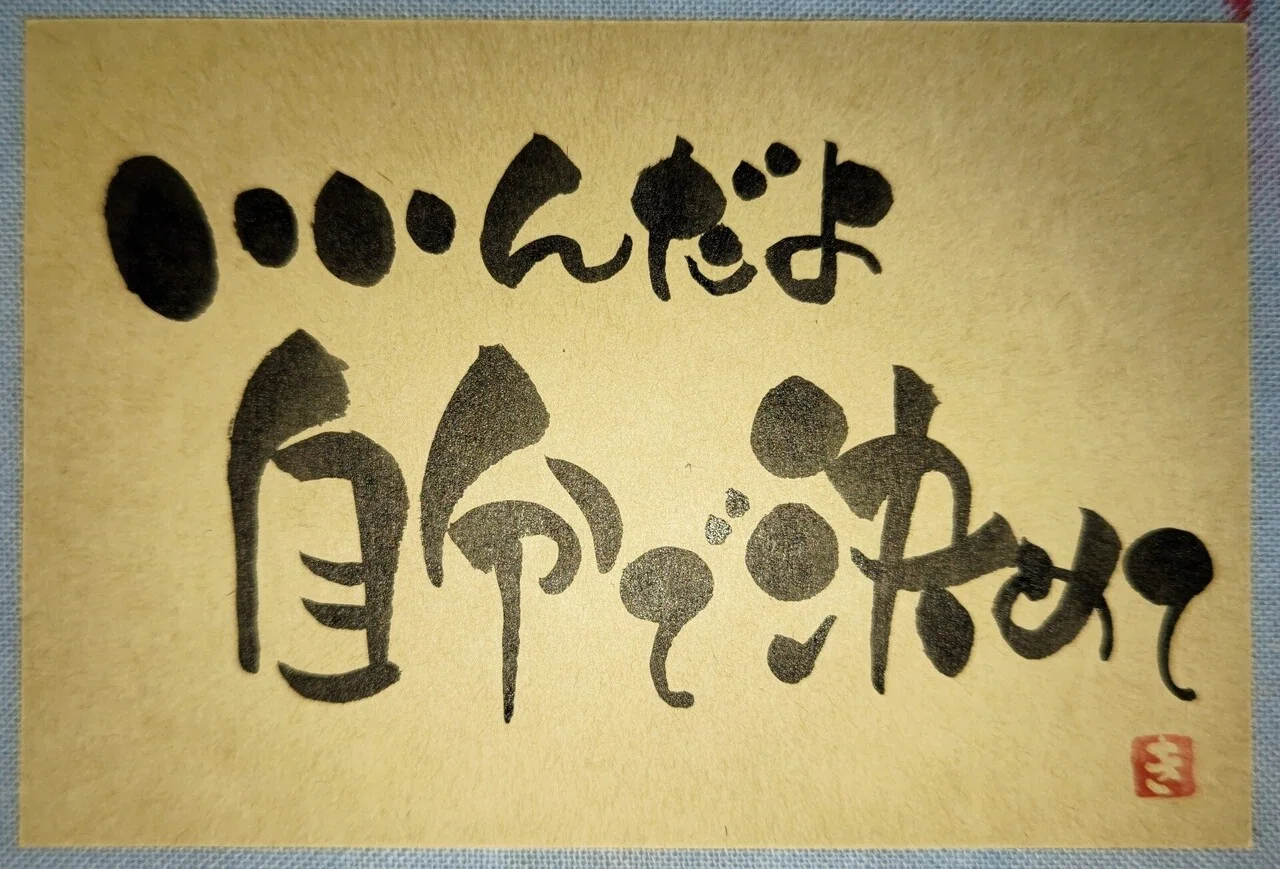 いいんだよ
自分で染めて
き